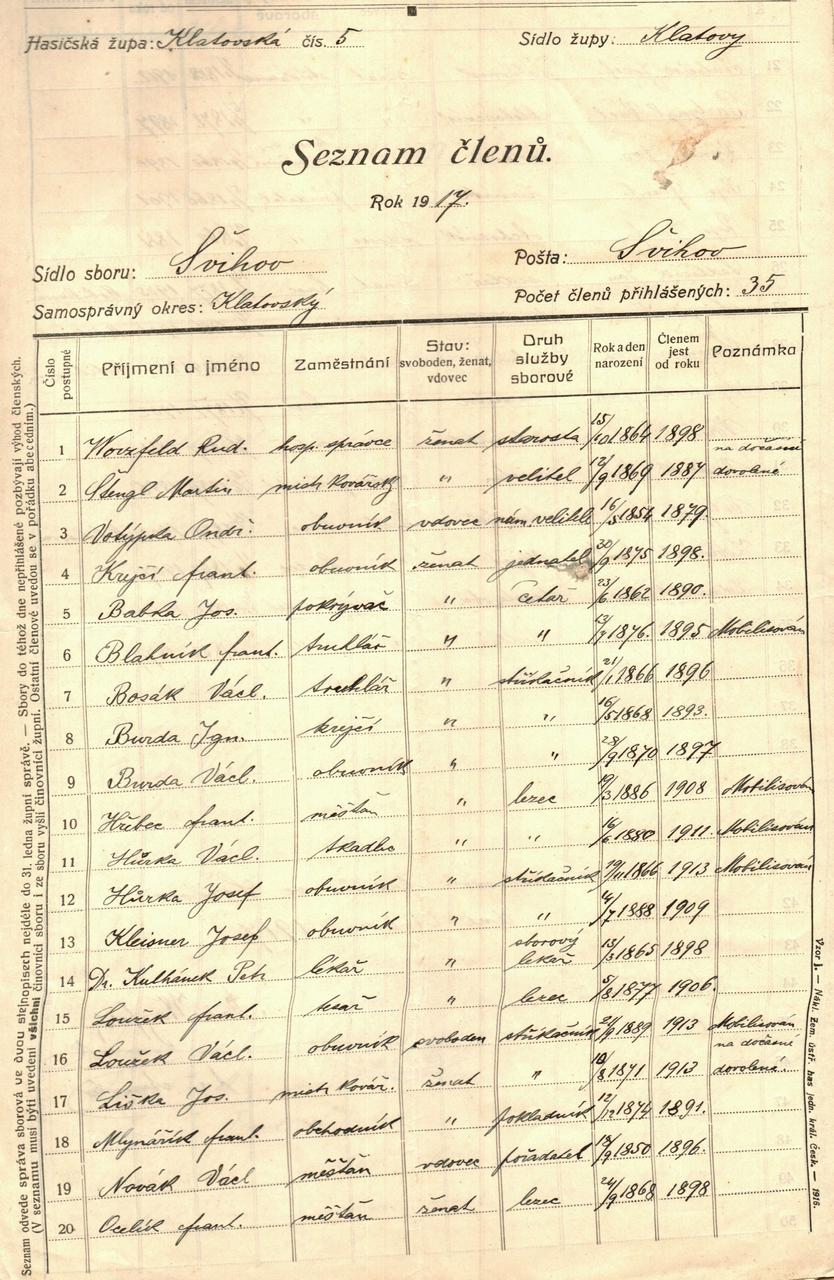 Hasičská župa: Klatovská čís. 5 Sídlo župy: Klatovy
Seznam členů.
Rok 1917.
Sídlo sboru: Švihov Pošta: Švihov
Samosprávný okres: Klatovský Počet členů přihlášených: 35
Číslo postupné Příjmení a jméno Zaměstnání Stav: svoboden, ženat, vdovec Druh služby sborové Rok a den narození Členem jest od roku Poznámka
1 Worzfeld Rud. hosp. správce ženat starosta 15/10 1864 1898
2 Štengl Martin mistr kovářský " velitel 12/9 1869 1887 na dočasné dovolené
3 Votýpka Ondř. obuvník vdovec nám. velitele 16/5 1854 1879.
4 Krejčí frant. obuvník ženat jednatel 30/9 1875 1898.
5 Babka Jos. pokrývač " četař 23/6 1862 1890.
6 Blahník frant. truhlář " " 1876. 1895 Mobilisován
7 Bosák Václ. truhlář " stříkačník 21/1 1866 1896
8 Burda Ign. krejčí " " 16/5 1868 1893.
9 Burda Václ. obuvník " " 28/9 1870 1897
10 Hřibec frant. měšťan " lezec 19/3 1886 1908 Mobilisován
11 Hůrka Václ. tkadlec " " 1880 1911 Mobilisován
12 Hůrka Josef obuvník " stříkačník 19/11 1866 1913 Mobilisován
13 Kleisner Josef obuvník " " 14/7 1888 1909
14 Dr. Kulhánek Petr lékař " sborový lékař 13/3 1865 1898
15 Loužek frant. tesař " lezec 5/8 1877 1906.
16 Loužek Václ. obuvník svoboden stříkačník 1889 1913 Mobilisován
17 Liška Jos. mistr kovář. ženat " 10/8 1871 1913 na dočasné dovolené.
18 Mlynářík frant. obchodník " pokladník 12/12 1874 1891.
19 Novák Václ měšťan vdovec pořadatel 17/9 1850 1896.
20 Ocelík frant. měšťan ženat lezec 24/9 1868 1898
Seznam odvede správa sborová ve dvou stejnopisech nejdéle do 31. ledna župní správě. — Sbory do téhož dne nepřihlášené pozbývají výhod členských.
(V seznamu musí býti uvedeni všichni činovníci sboru i ze sboru vyšlí činovníci župní. Ostatní členové uvedou se v pořádku abecedním.)
Vzor I. — Nákl. Zem. ústř. has. jedn. král. Česk. — 1916.